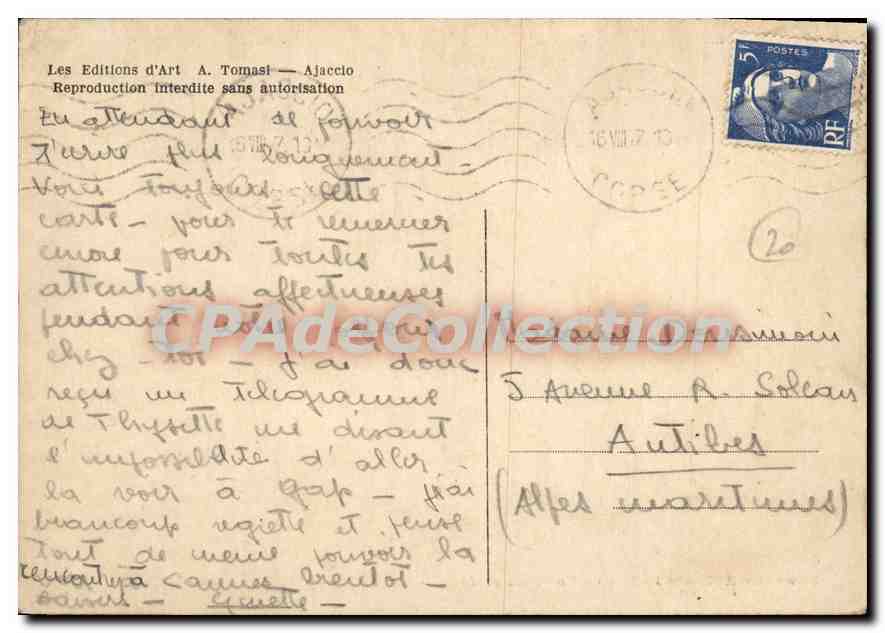 Les Editions d'Art A. Tomasi — Ajaccio
Reproduction interdite sans autorisation
En attendant de pouvoir
t'écrire plus longuement -
Voici toujours cette
carte - pour te remercier
encore pour toutes tes
attentions affectueuses
pendant notre séjour
chez - toi - j'ai donc
reçu un télégramme
de Thysette me disant
l'impossibilité d'aller
la voir à Gap - j'ai
beaucoup regretté et pense
tout de même pouvoir la
rencontrer à Cannes bientôt -
baisers - Ginette -
5F POSTES
RF
16 VIII 7. 15
CORSE
20
Madame
5 Avenue R. Soleau
Antibes
(Alpes maritimes)
CPAdeCollection.com